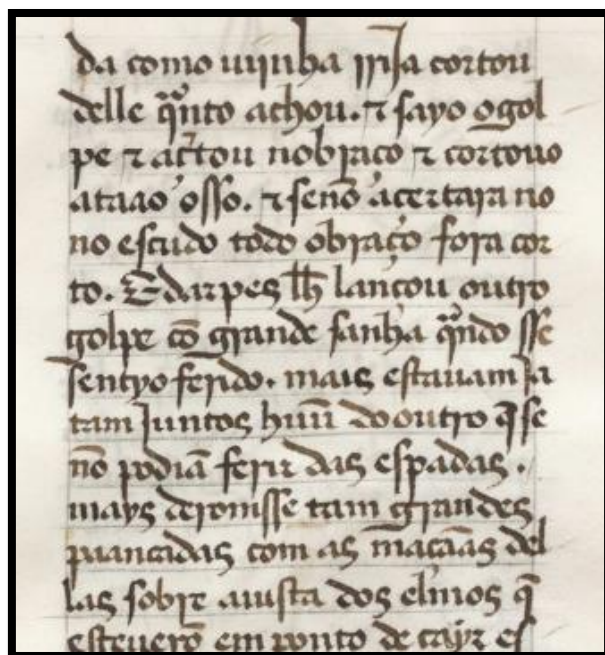 da como uijnha rrija cortou
delle q̃nto achou. ⁊ sayo ogol
pe ⁊ ac̃tou nobraço ⁊ cortouo
ataao osso. ⁊ senõ acertara no
no escudo todo obraço fora cor
to. Edarpes lh̃ lançou outro
golpe cõ grande sanha q̃ndo sse
sentyo ferido. mais estauam Ja
tam Juntos huũ dooutro q̃ se
nõ podiã ferir das espadas.
mays deromsse tam grandes
pancadas com as maçãas del
las sobre auista dos elmos q̃
esteuerõ em ponto de cayr es